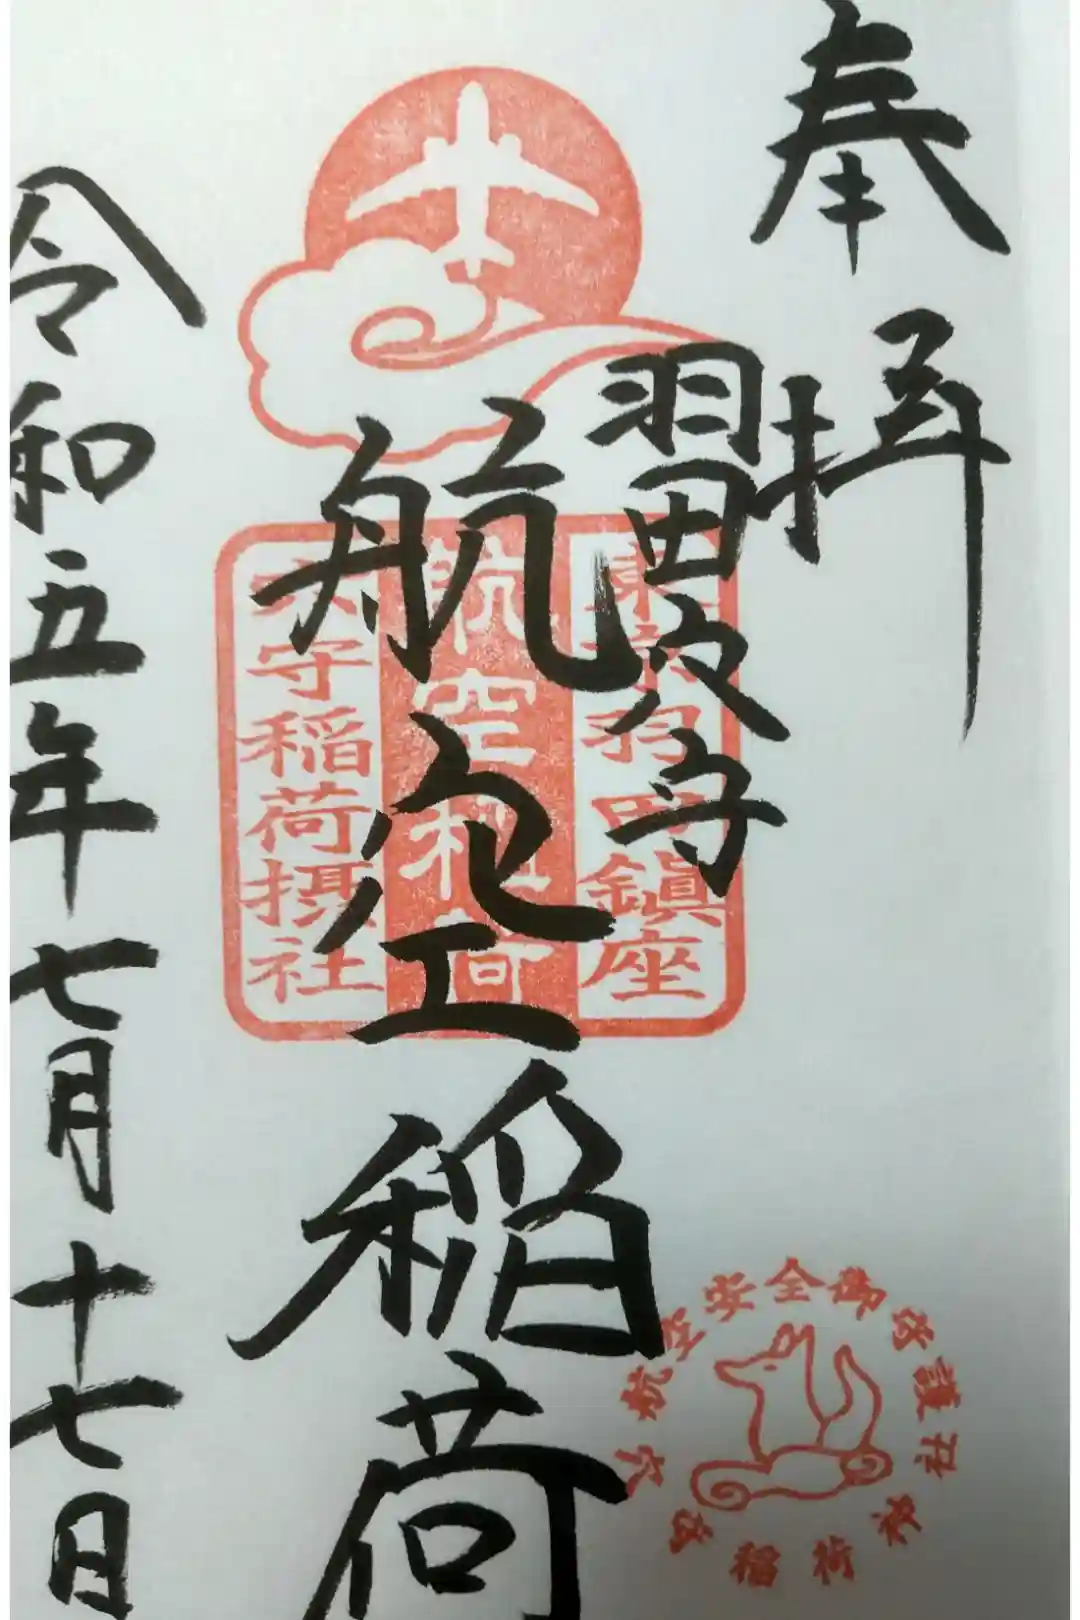 奉拝
羽田穴守
航空稲荷
令和五年七月十七日
東京羽田鎮座
航空稲荷
穴守稲荷摂社
航空安全御守護
穴守稲荷神社